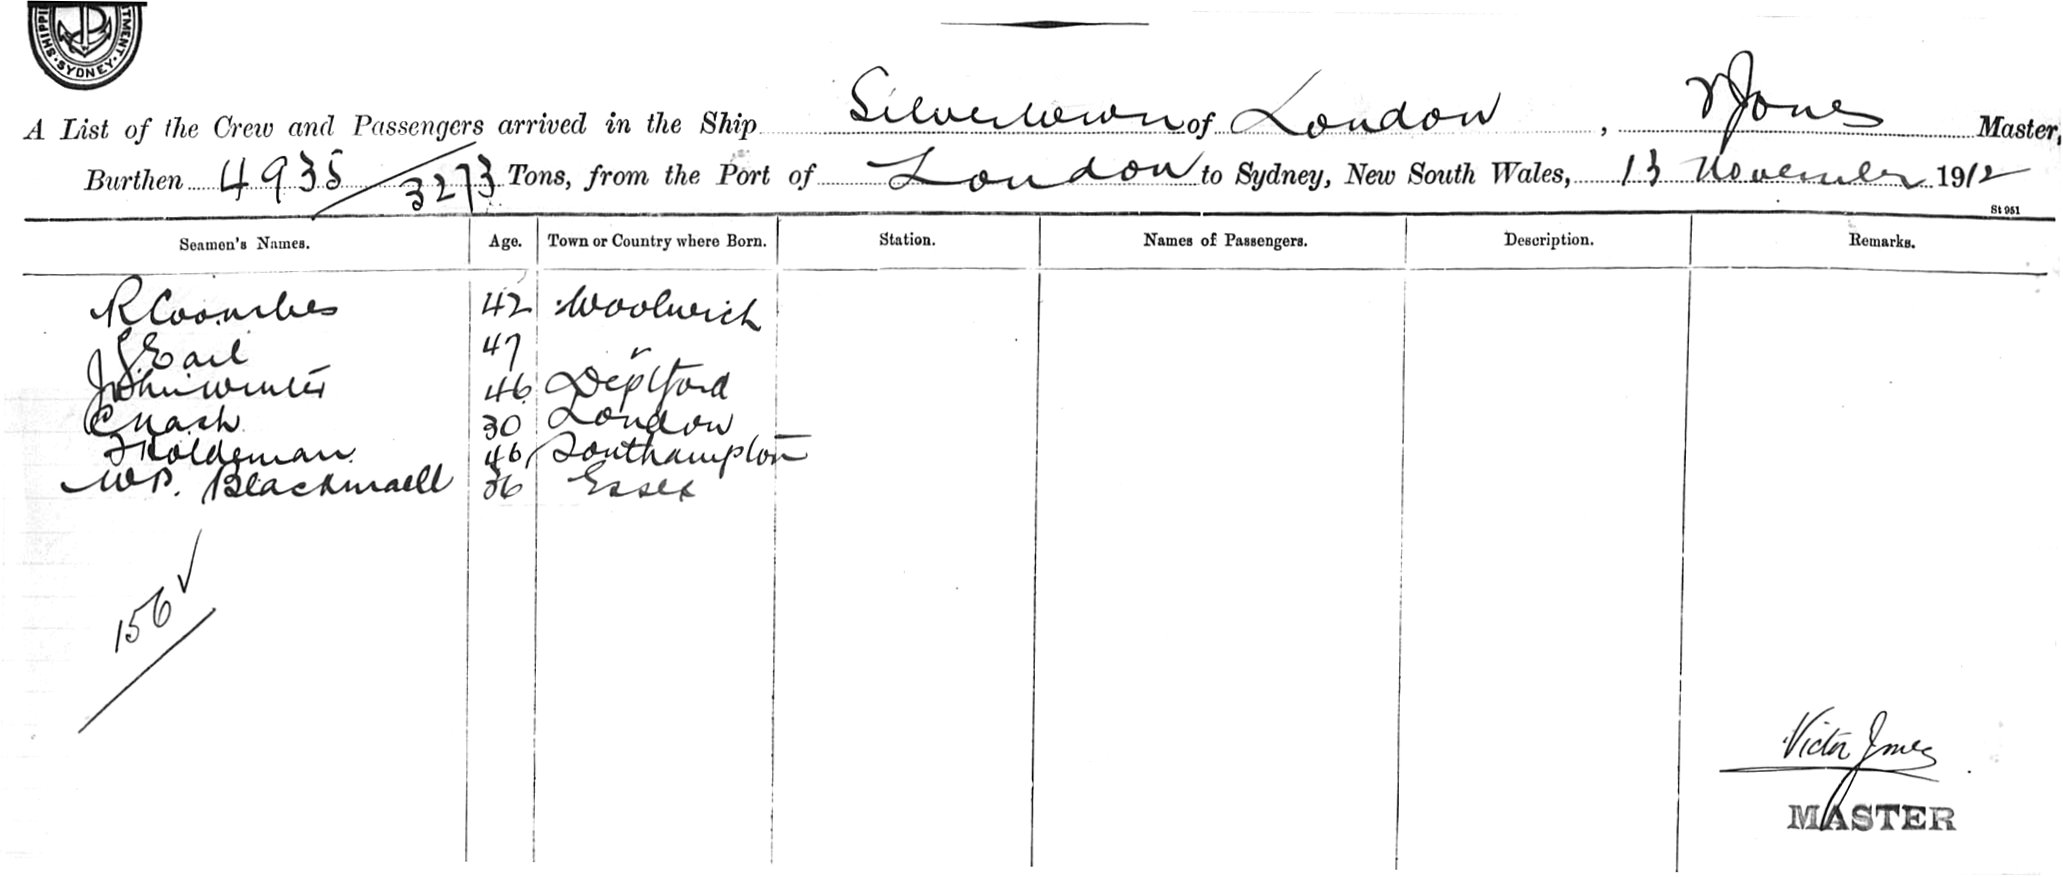 SHIPPI TMENT
· SYDNEY ·
A List of the Crew and Passengers arrived in the Ship Silvertown of London, V Jones Master,
Burthen 4935/3273 Tons, from the Port of London to Sydney, New South Wales, 13 November 1912
St 951
Seamen's Names. Age. Town or Country where Born. Station. Names of Passengers. Description. Remarks.
R Coombes 42 Woolwich
J Earl 47 "
John Winter 46 Deptford
C Nash 30 London
Holdeman 46 Southampton
W P. Blackmaell 36 Essex
156 ✓
Victor Jones
MASTER